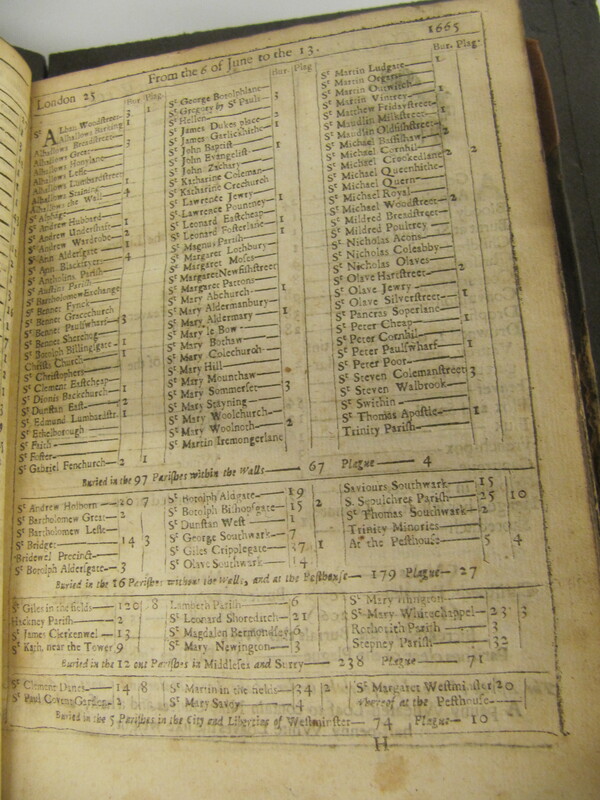 From the 6 of June to the 13. 1665
London 25
Bur. Plag.
Sᵗ ALban Woodstreet— 3 1
Alhallows Barking 1
Alhallows Breadstreet—
Alhallows Great— 3
Alhallows Honylane—
Alhallows Lesse—
Alhallows Lumbardstreet 1
Alhallows Staining—
Alhallows the Wall— 4
Sᵗ Alphage—
Sᵗ Andrew Hubbard—
Sᵗ Andrew Undershaft— 1
Sᵗ Andrew Wardrobe— 2
Sᵗ Ann Aldersgate— 1
Sᵗ Ann Blackfryers— 4
Sᵗ Antholins Parish—
Sᵗ Austins Parish—
Sᵗ Bartholomew Exchange
Sᵗ Bennet Fynck—
Sᵗ Bennet Gracechurch
Sᵗ Bennet Paulswharf— 3
Sᵗ Bennet Sherehog—
Sᵗ Botolph Billingsgate— 1
Christs Church— 1
Sᵗ Christophers—
Sᵗ Clement Eastcheap—
Sᵗ Dionis Backchurch— 1
Sᵗ Dunstan East— 2
Sᵗ Edmund Lumbardstr. 1
Sᵗ Ethelborough—
Sᵗ Faith—
Sᵗ Foster—
Sᵗ Gabriel Fenchurch— 2 1
Bur. Plag
Sᵗ George Botolphlane—
Sᵗ Gregory by Sᵗ Pauls— 3
Sᵗ Hellen—
Sᵗ James Dukes place— 2
Sᵗ James Garlickhithe— 1
Sᵗ John Baptist— 1
Sᵗ John Evangelist—
Sᵗ John Zachary—
Sᵗ Katharine Coleman—
Sᵗ Katharine Creechurch
Sᵗ Lawrence Jewry— 1
Sᵗ Lawrence Pountney—
Sᵗ Leonard Eastcheap— 1
Sᵗ Leonard Fosterlane— 1
Sᵗ Magnus Parish—
Sᵗ Margaret Lothbury—
Sᵗ Margaret Moses—
Sᵗ Margaret Newfishstreet
Sᵗ Margaret Pattons—
Sᵗ Mary Abchurch— 1
Sᵗ Mary Aldermanbury—
Sᵗ Mary Aldermary— 1
Sᵗ Mary le Bow—
Sᵗ Mary Bothaw—
Sᵗ Mary Colechurch—
Sᵗ Mary Hill—
Sᵗ Mary Mounthaw—
Sᵗ Mary Sommerset— 3
Sᵗ Mary Stayning—
Sᵗ Mary Woolchurch—
Sᵗ Mary Woolnoth— 2
Sᵗ Martin Iremongerlane
Bur. Plag.
Sᵗ Martin Ludgate— 1
Sᵗ Martin Orgars—
Sᵗ Martin Outwitch—
Sᵗ Martin Vintrey— 1
Sᵗ Matthew Fridaystreet—
Sᵗ Maudlin Milkstreet— 1
Sᵗ Maudlin Oldfishstreet—
Sᵗ Michael Bassishaw— 2
Sᵗ Michael Cornhil—
Sᵗ Michael Crookedlane— 2 2
Sᵗ Michael Queenhithe—
Sᵗ Michael Quern—
Sᵗ Michael Royal—
Sᵗ Michael Woodstreet— 2
Sᵗ Mildred Breadstreet—
Sᵗ Mildred Poultrey—
Sᵗ Nicholas Acons—
Sᵗ Nicholas Coleabby—
Sᵗ Nicholas Olaves—
Sᵗ Olave Hartstreet— 2
Sᵗ Olave Jewry—
Sᵗ Olave Silverstreet— 1
Sᵗ Pancras Soperlane—
Sᵗ Peter Cheap— 1
Sᵗ Peter Cornhil—
Sᵗ Peter Paulswharf— 1
Sᵗ Peter Poor—
Sᵗ Steven Colemanstreet 3
Sᵗ Steven Walbrook—
Sᵗ Swithin—
Sᵗ Thomas Apostle— 1
Trinity Parish—
Buried in the 97 Parishes within the Walls— 67 Plague— 4
Sᵗ Andrew Holborn— 20 7
Sᵗ Bartholomew Great— 2
Sᵗ Bartholomew Lesse—
Sᵗ Bridget— 14 3
Bridewel Precinct—
Sᵗ Botolph Aldersgate— 3
Sᵗ Botolph Aldgate— 19
Sᵗ Botolph Bishopsgate— 15 2
Sᵗ Dunstan West— 1
Sᵗ George Southwark— 7
Sᵗ Giles Cripplegate— 37 1
Sᵗ Olave Southwark— 14
Saviours Southwark— 15
S. Sepulchres Parish— 25 10
Sᵗ Thomas Southwark— 2
Trinity Minories—
At the Pesthouse— 5 4
Buried in the 16 Parishes without the Walls, and at the Pesthouse— 179 Plague— 27
Sᵗ Giles in the fields— 120 8
Hackney Parish— 2
Sᵗ James Clerkenwel— 13
Sᵗ Kath. near the Tower 9
Lambeth Parish— 6
Sᵗ Leonard Shoreditch— 21
Sᵗ Magdalen Bermondsey 6
Sᵗ Mary Newington— 3
Sᵗ Mary Islington—
Sᵗ Mary Whitechappel— 23 3
Rothorith Parish— 3
Stepney Parish— 32
Buried in the 12 out Parishes in Middlesex and Surry— 238 Plague— 71
Sᵗ Clement Danes— 14 8
Sᵗ Paul Covent Garden— 2
Sᵗ Martin in the fields— 34 2
Sᵗ Mary Savoy— 4
Sᵗ Margaret Westminster 20
whereof at the Pesthouse—
Buried in the 5 Parishes in the City and Liberties of Westminster— 74 Plague— 10
H